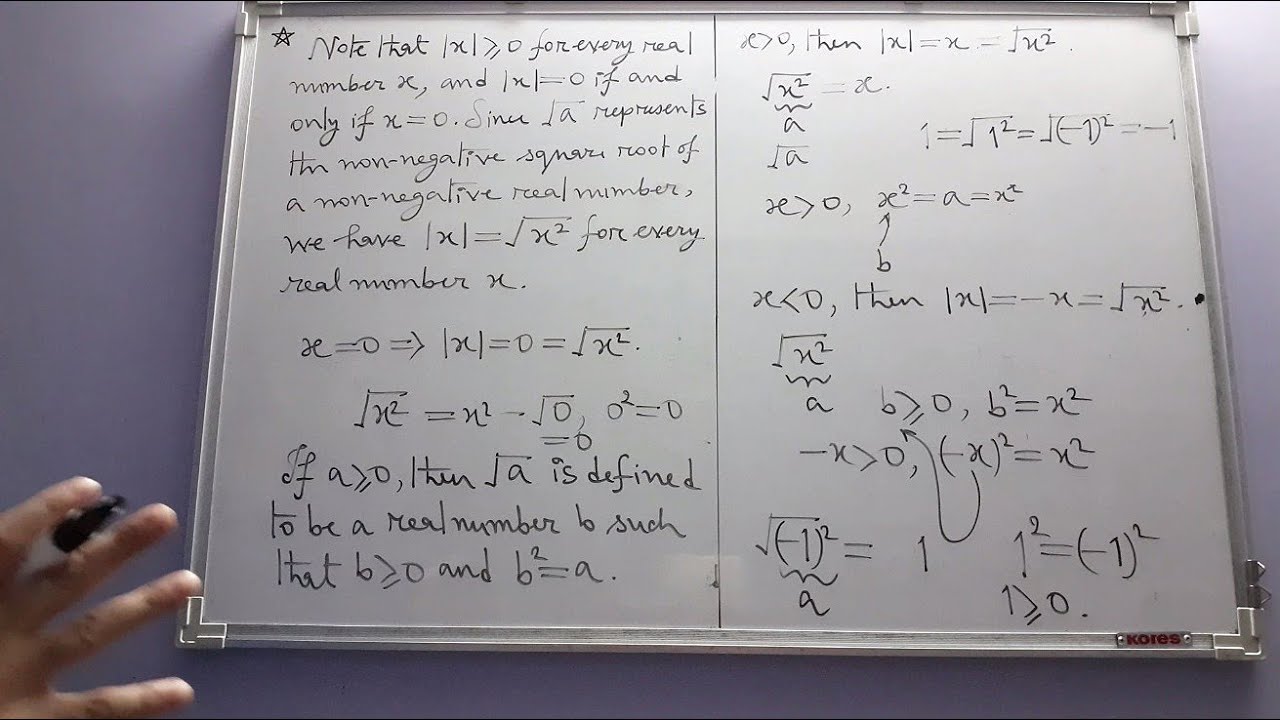 ☆ Note that |x| ⩾ 0 for every real
number x, and |x| = 0 if and
only if x = 0. Since √a represents
the non-negative square root of
a non-negative real number,
we have |x| = √x² for every
real number x.
x = 0 ⇒ |x| = 0 = √x².
√x² = x² - √0, 0² = 0
= 0
If a ⩾ 0, then √a is defined
to be a real number b such
that b ⩾ 0 and b² = a.
x > 0, then |x| = x = √x².
√x² = x.
a
√a
1 = √1² = √(-1)² = -1
x > 0, x² = a = x²
b
x < 0, then |x| = -x = √x².
√x²
a b ⩾ 0, b² = x²
-x > 0, (-x)² = x²
√(-1)² = 1 1² = (-1)²
a 1 ⩾ 0.
KORES